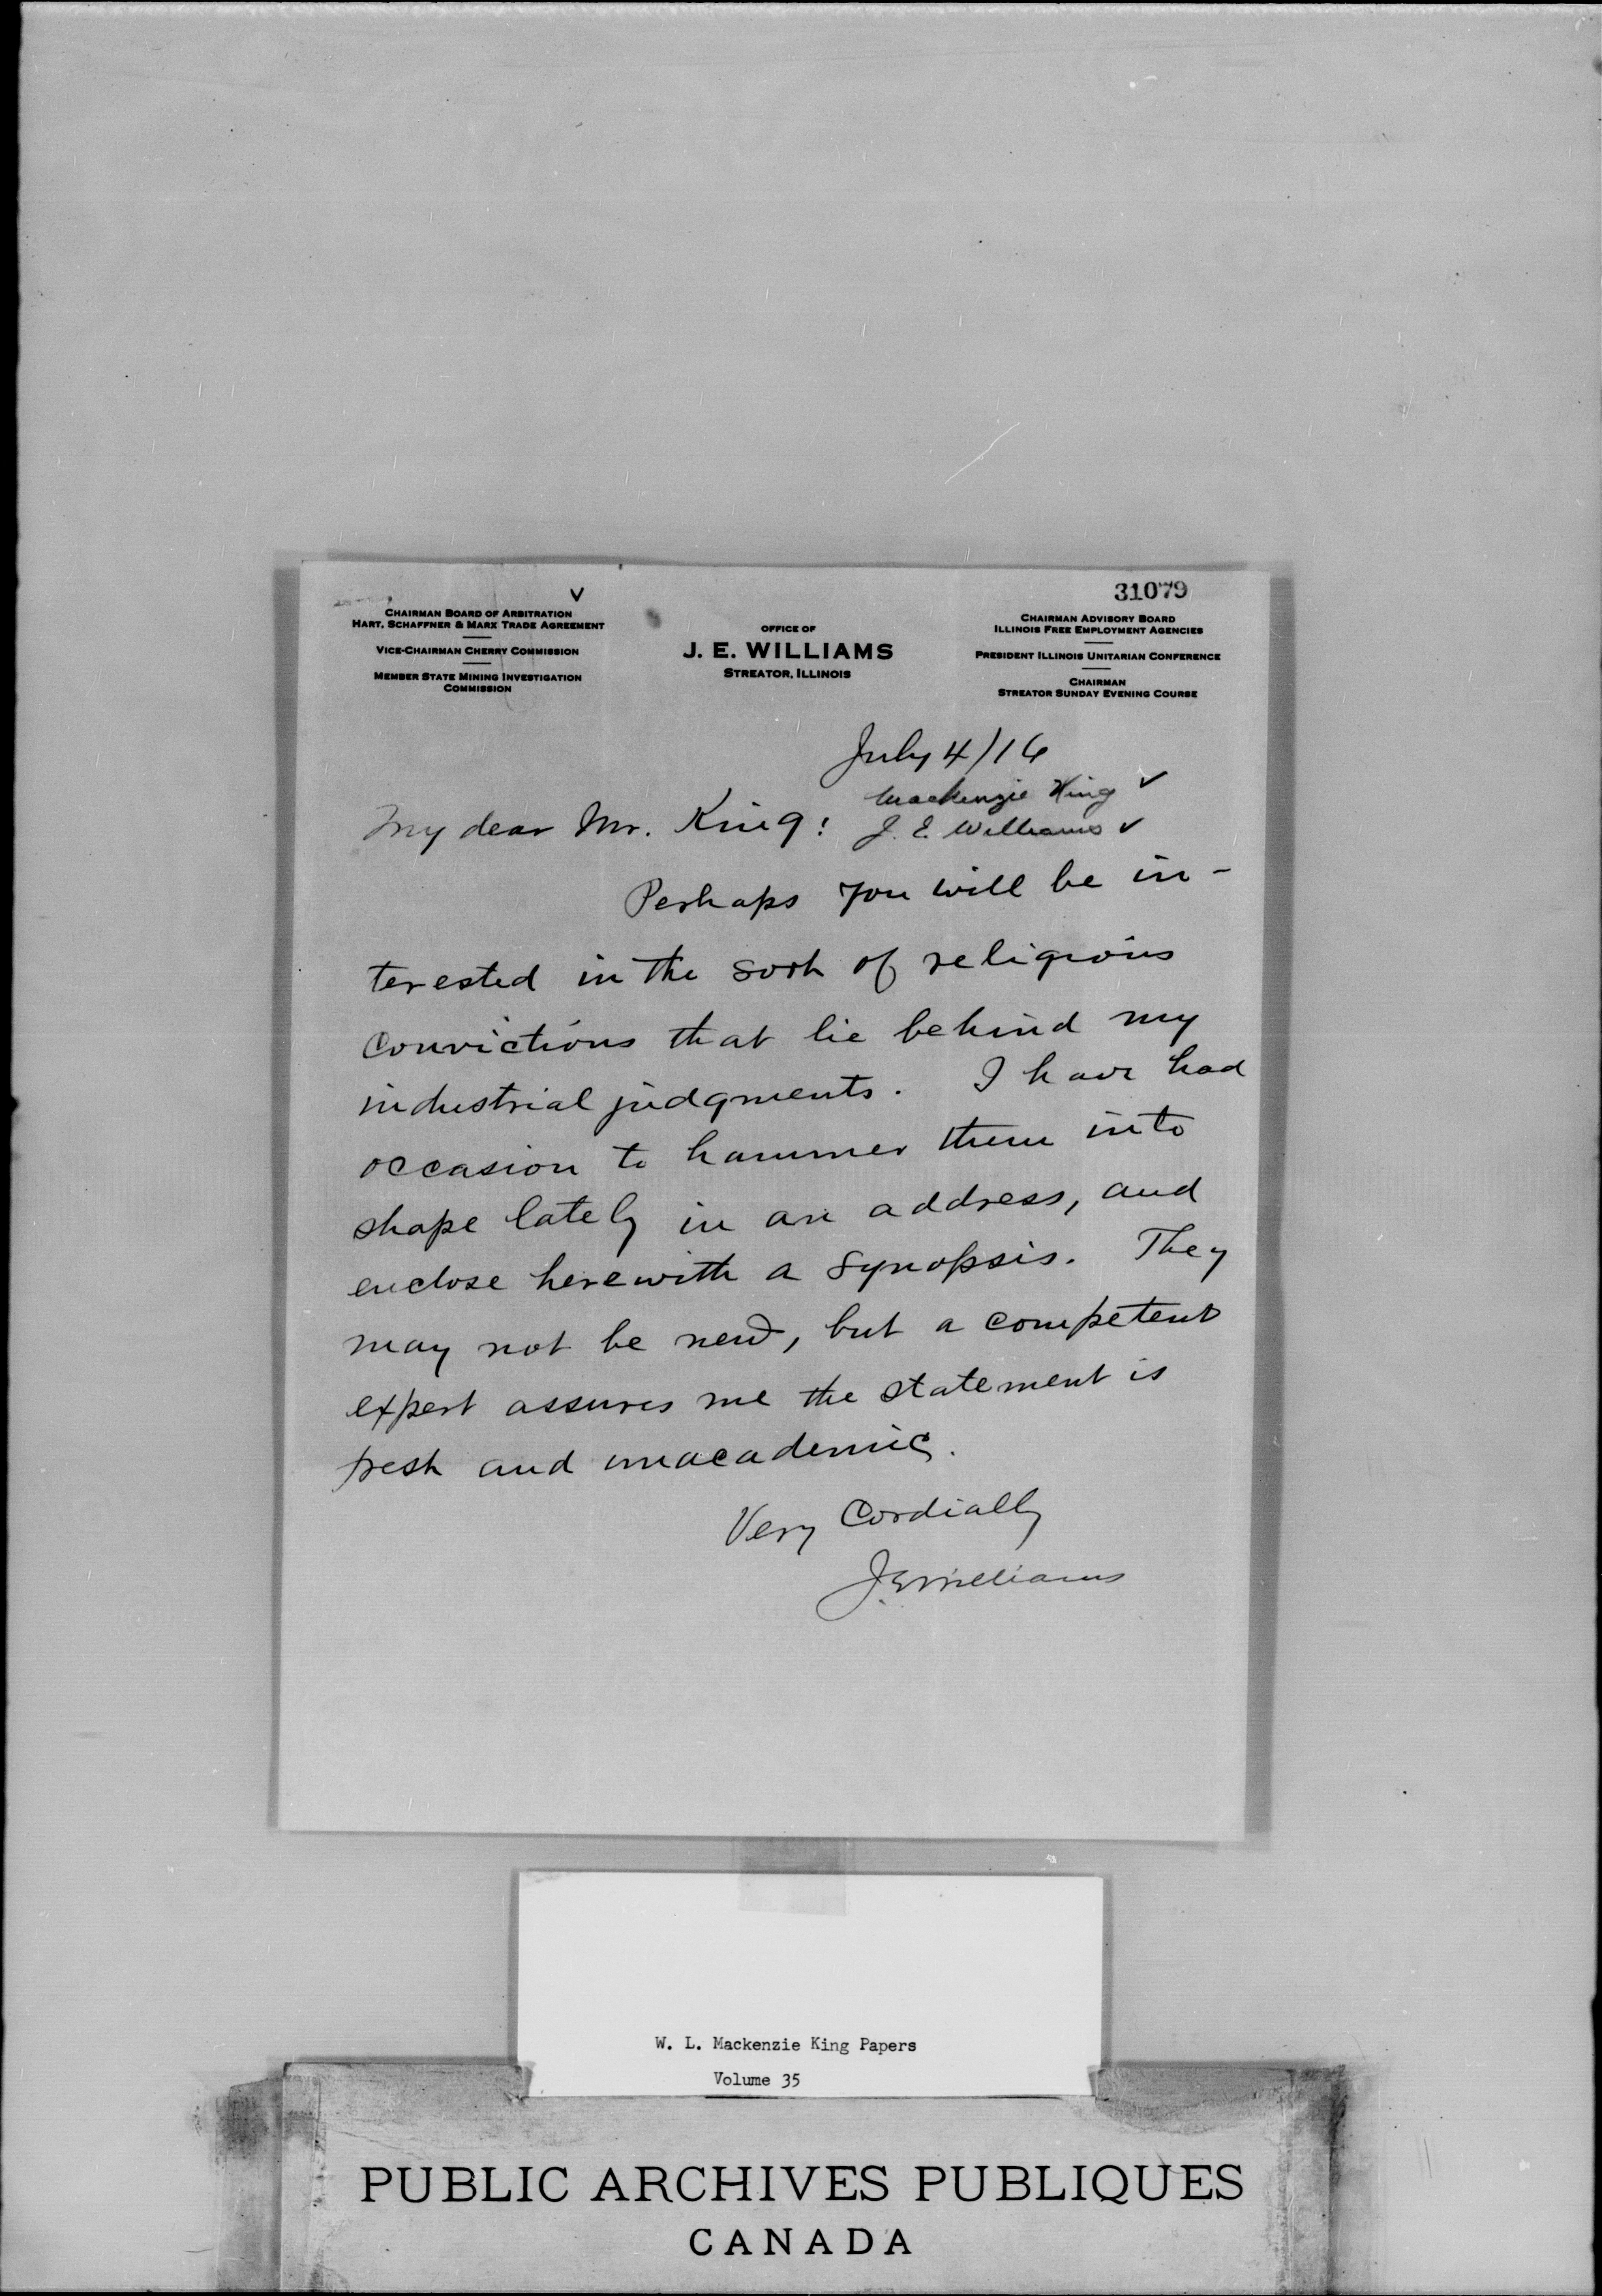 31079
✓
CHAIRMAN BOARD OF ARBITRATION
HART, SCHAFFNER & MARX TRADE AGREEMENT
VICE-CHAIRMAN CHERRY COMMISSION
MEMBER STATE MINING INVESTIGATION
COMMISSION
OFFICE OF
J. E. WILLIAMS
STREATOR, ILLINOIS
CHAIRMAN ADVISORY BOARD
ILLINOIS FREE EMPLOYMENT AGENCIES
PRESIDENT ILLINOIS UNITARIAN CONFERENCE
CHAIRMAN
STREATOR SUNDAY EVENING COURSE
July 4/16
Mackenzie King ✓
J. E. Williams ✓
My dear Mr. King:
Perhaps you will be in-
terested in the sort of religious
convictions that lie behind my
industrial judgments. I have had
occasion to hammer them into
shape lately in an address, and
enclose herewith a synopsis. They
may not be new, but a competent
expert assures me the statement is
fresh and unacademic.
Very Cordially
J. E. Williams
W. L. Mackenzie King Papers
Volume 35
PUBLIC ARCHIVES PUBLIQUES
CANADA